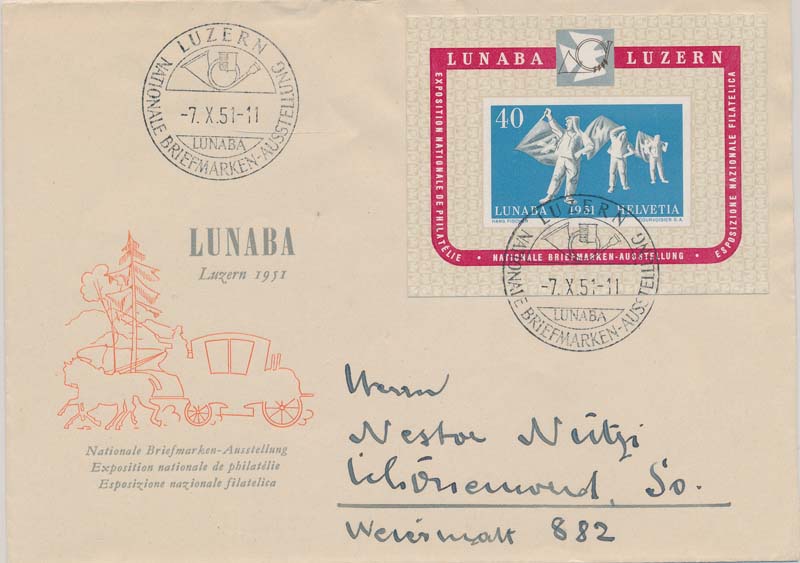 LUZERN
-7.X.51-11
LUNABA
NATIONALE BRIEFMARKEN-AUSSTELLUNG
LUNABA LUZERN
EXPOSITION NATIONALE DE PHILATÉLIE • NATIONALE BRIEFMARKEN-AUSSTELLUNG • ESPOSIZIONE NAZIONALE FILATELICA
40
LUNABA 1951 HELVETIA
HANS FISCHER COURVOISIER S.A.
LUZERN
-7.X.51-11
LUNABA
NATIONALE BRIEFMARKEN-AUSSTELLUNG
LUNABA
Luzern 1951
Nationale Briefmarken-Ausstellung
Exposition nationale de philatélie
Esposizione nazionale filatelica
Herrn
Nestor Nützi
Schönenwerd, So.
882